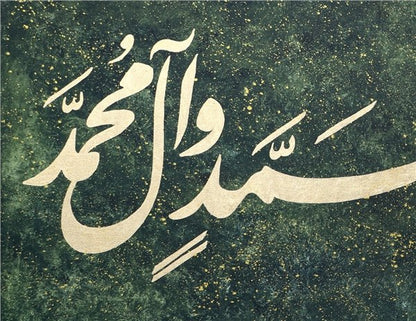 ـمَّدٍ وآل مُحمَّد